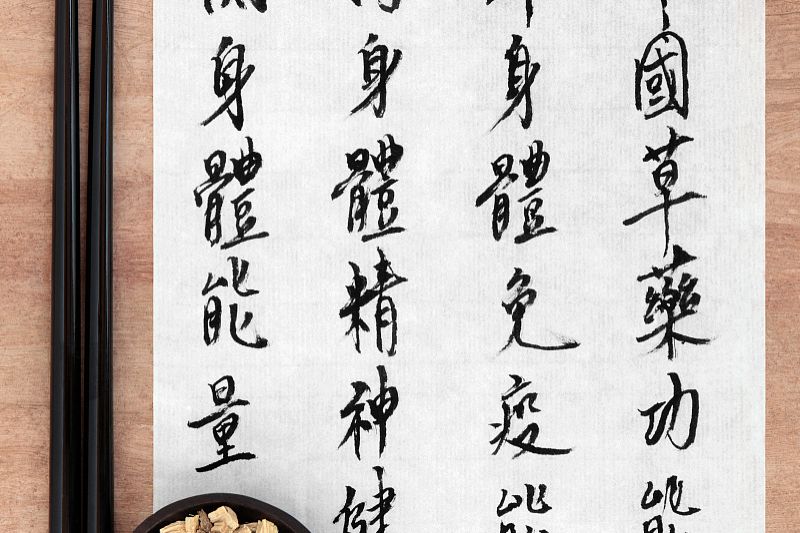 國草藥功能
身體免疫能
身體精神健
身體能量